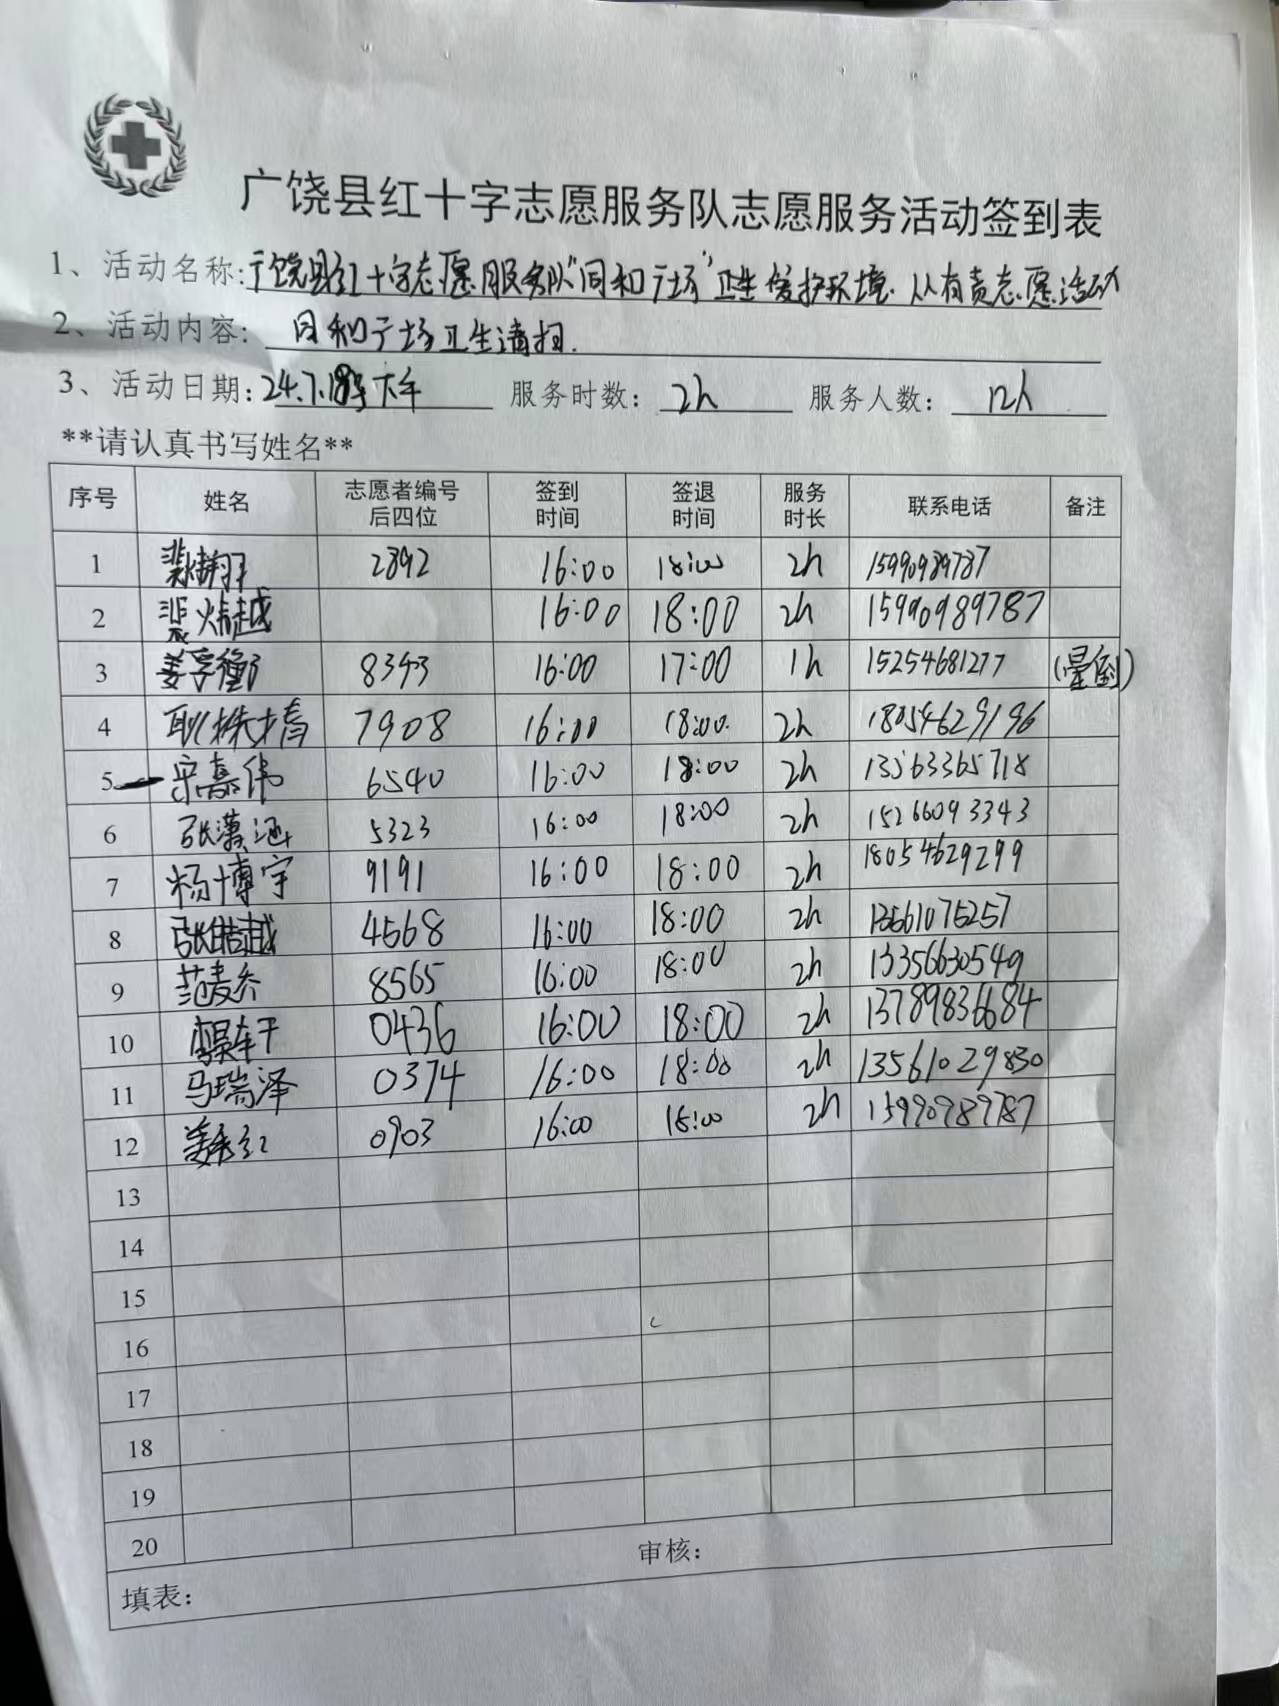 广饶县红十字志愿服务队志愿服务活动签到表
1、活动名称:广饶县红十字志愿服务队"同和广场"卫生爱护环境.从有责志愿活动
2、活动内容: 同和广场卫生清扫.
3、活动日期:24.7.18 下午 服务时数: 2h 服务人数: 12人
**请认真书写姓名**
序号 姓名 志愿者编号后四位 签到时间 签退时间 服务时长 联系电话 备注
1 2892 16:00 18:00 2h 15990989787
2 裴 越 16:00 18:00 2h 15990989787
3 姜孚衡 8393 16:00 17:00 1h 15254681277 (晕倒)
4 耿 7908 16:00 18:00. 2h 18054629196
5 宋嘉伟 6540 16:00 18:00 2h 13563365718
6 张潇涵 5323 16:00 18:00 2h 15266093343
7 杨博宇 9191 16:00 18:00 2h 18054629299
8 张皓越 4568 16:00 18:00 2h 13561075257
9 范麦乔 8565 16:00 18:00 2h 13356630549
10 0436 16:00 18:00 2h 13789836684
11 马瑞泽 0374 16:00 18:00 2h 13561029830
12 姜 红 0903 16:00 18:00 2h 15990989787
13
14
15
16
17
18
19
20
审核:
填表: